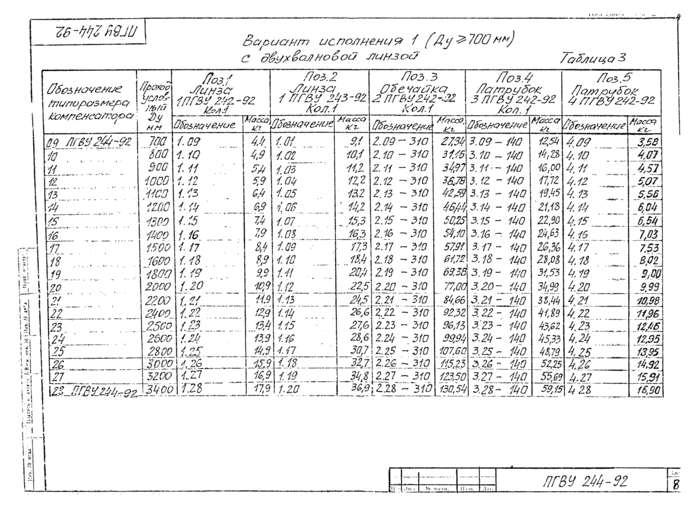 ПГВУ 244-92
Вариант исполнения 1 (Ду ≥ 700 мм)
с двухвалновой линзой
Таблица 3
Обозначение типоразмера компенсатора | Проход условный Ду мм | Поз.1 Линза 1 ПГВУ 242-92 Кол.1 | Поз.2 Линза 1 ПГВУ 243-92 Кол.1 | Поз.3 Обечайка 2 ПГВУ 242-92 Кол.1 | Поз.4 Патрубок 3 ПГВУ 242-92 Кол.1 | Поз.5 Патрубок 4 ПГВУ 242-92
Обозначение | Масса кг | Обозначение | Масса кг | Обозначение | Масса кг | Обозначение | Масса кг | Обозначение | Масса кг
09 ПГВУ 244-92 | 700 | 1.09 | 4,4 | 1.01 | 9,1 | 2.09 - 310 | 27,34 | 3.09 - 140 | 12,54 | 4.09 | 3,58
10 | 800 | 1.10 | 4,9 | 1.02 | 10,1 | 2.10 - 310 | 31,16 | 3.10 - 140 | 14,28 | 4.10 | 4,07
11 | 900 | 1.11 | 5,4 | 1.03 | 11,2 | 2.11 - 310 | 34,97 | 3.11 - 140 | 16,00 | 4.11 | 4,57
12 | 1000 | 1.12 | 5,9 | 1.04 | 12,2 | 2.12 - 310 | 38,78 | 3.12 - 140 | 17,72 | 4.12 | 5,07
13 | 1100 | 1.13 | 6,4 | 1.05 | 13,2 | 2.13 - 310 | 42,59 | 3.13 - 140 | 19,45 | 4.13 | 5,56
14 | 1200 | 1.14 | 6,9 | 1.06 | 14,2 | 2.14 - 310 | 46,44 | 3.14 - 140 | 21,18 | 4.14 | 6,04
15 | 1300 | 1.15 | 7,4 | 1.07 | 15,3 | 2.15 - 310 | 50,25 | 3.15 - 140 | 22,90 | 4.15 | 6,54
16 | 1400 | 1.16 | 7,9 | 1.08 | 16,3 | 2.16 - 310 | 54,10 | 3.16 - 140 | 24,63 | 4.16 | 7,03
17 | 1500 | 1.17 | 8,4 | 1.09 | 17,3 | 2.17 - 310 | 57,91 | 3.17 - 140 | 26,36 | 4.17 | 7,53
18 | 1600 | 1.18 | 8,9 | 1.10 | 18,4 | 2.18 - 310 | 61,72 | 3.18 - 140 | 28,08 | 4.18 | 8,02
19 | 1800 | 1.19 | 9,9 | 1.11 | 20,4 | 2.19 - 310 | 69,38 | 3.19 - 140 | 31,53 | 4.19 | 9,00
20 | 2000 | 1.20 | 10,9 | 1.12 | 22,5 | 2.20 - 310 | 77,00 | 3.20 - 140 | 34,99 | 4.20 | 9,99
21 | 2200 | 1.21 | 11,9 | 1.13 | 24,5 | 2.21 - 310 | 84,66 | 3.21 - 140 | 38,44 | 4.21 | 10,98
22 | 2400 | 1.22 | 12,9 | 1.14 | 26,6 | 2.22 - 310 | 92,32 | 3.22 - 140 | 41,89 | 4.22 | 11,96
23 | 2500 | 1.23 | 13,4 | 1.15 | 27,6 | 2.23 - 310 | 96,13 | 3.23 - 140 | 43,62 | 4.23 | 12,46
24 | 2600 | 1.24 | 13,9 | 1.16 | 28,6 | 2.24 - 310 | 99,94 | 3.24 - 140 | 45,33 | 4.24 | 12,95
25 | 2800 | 1.25 | 14,9 | 1.17 | 30,7 | 2.25 - 310 | 107,60 | 3.25 - 140 | 48,79 | 4.25 | 13,95
26 | 3000 | 1.26 | 15,9 | 1.18 | 32,7 | 2.26 - 310 | 115,23 | 3.26 - 140 | 52,25 | 4.26 | 14,92
27 | 3200 | 1.27 | 16,9 | 1.19 | 34,8 | 2.27 - 310 | 123,50 | 3.27 - 140 | 55,69 | 4.27 | 15,91
28 ПГВУ 244-92 | 3400 | 1.28 | 17,9 | 1.20 | 36,9 | 2.28 - 310 | 130,54 | 3.28 - 140 | 59,15 | 4.28 | 16,90
ПГВУ 244-92
8